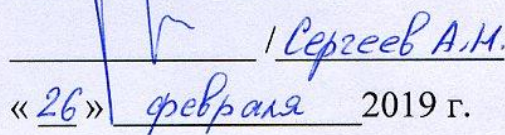 / Сергеев А.Н.
«26» февраля 2019 г.